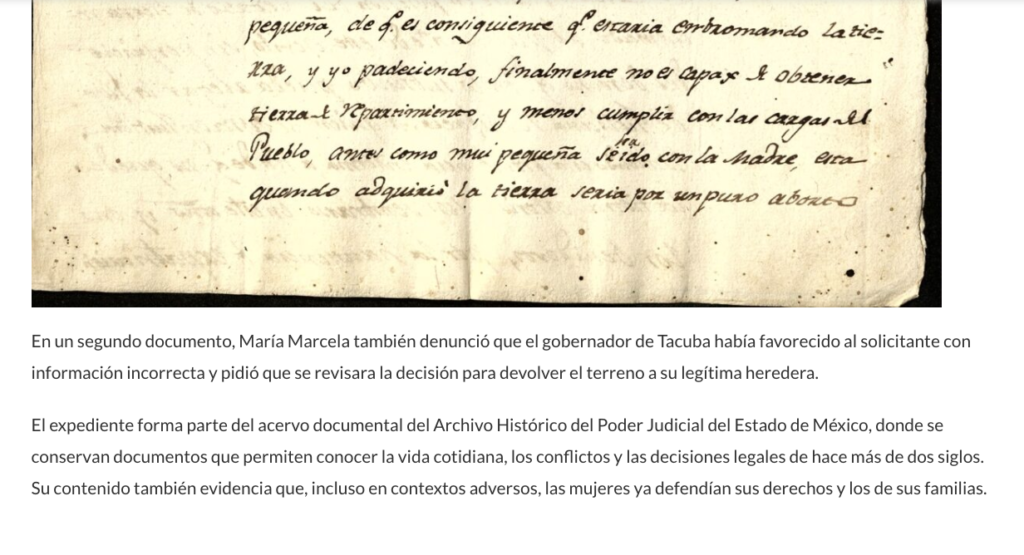 pequeña, de q.e es consiguiente q.e estaria embromando la tie=
rra, y yo padeciendo, finalmente no es capax de obtener
tierra de Repartimiento, y menos cumplir con las cargas del
Pueblo, antes como mui pequeña con la Madre, esta
quando adquirió la tierra seria por un puro aborto
En un segundo documento, María Marcela también denunció que el gobernador de Tacuba había favorecido al solicitante con
información incorrecta y pidió que se revisara la decisión para devolver el terreno a su legítima heredera.
El expediente forma parte del acervo documental del Archivo Histórico del Poder Judicial del Estado de México, donde se
conservan documentos que permiten conocer la vida cotidiana, los conflictos y las decisiones legales de hace más de dos siglos.
Su contenido también evidencia que, incluso en contextos adversos, las mujeres ya defendían sus derechos y los de sus familias.